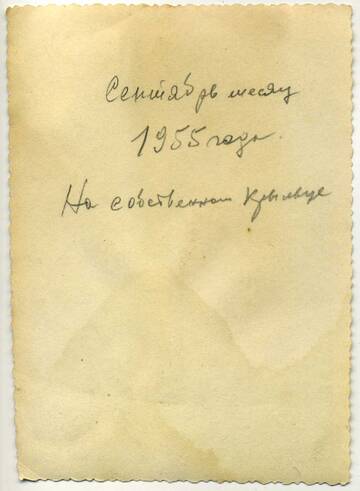 Сентябрь месяц
1955 года.
На собственном крыльце